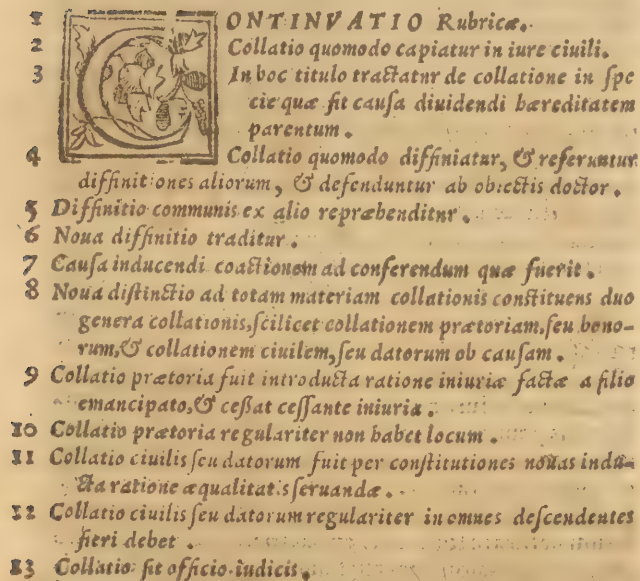 1 CONTINVATIO Rubricæ.
2 Collatio quomodo capiatur in iure ciuili.
3 In hoc titulo tractatnr de collatione in spe
cie quæ fit causa diuidendi hæreditatem
parentum.
4 Collatio quomodo diffiniatur, & referuntur
diffinitiones aliorum, & defenduntur ab obiectis doctor.
5 Diffinitio communis ex alio repræhenditnr.
6 Noua diffinitio traditur.
7 Causa inducendi coactionem ad conferendum quæ fuerit.
8 Noua distinctio ad totam materiam collationis constituens duo
genera collationis, scilicet collationem prætoriam, seu bono-
rum, & collationem ciuilem, seu datorum ob causam.
9 Collatio prætoria fuit introducta ratione iniuriæ factæ a filio
emancipato, & cessat cessante iniuria.
10 Collatio prætoria regulariter non habet locum.
11 Collatio ciuilis seu datorum fuit per constitutiones nouas indu-
cta ratione æqualitatis seruandæ.
12 Collatio ciuilis seu datorum regulariter in omnes descendentes
fieri debet.
13 Collatio fit officio iudicis.